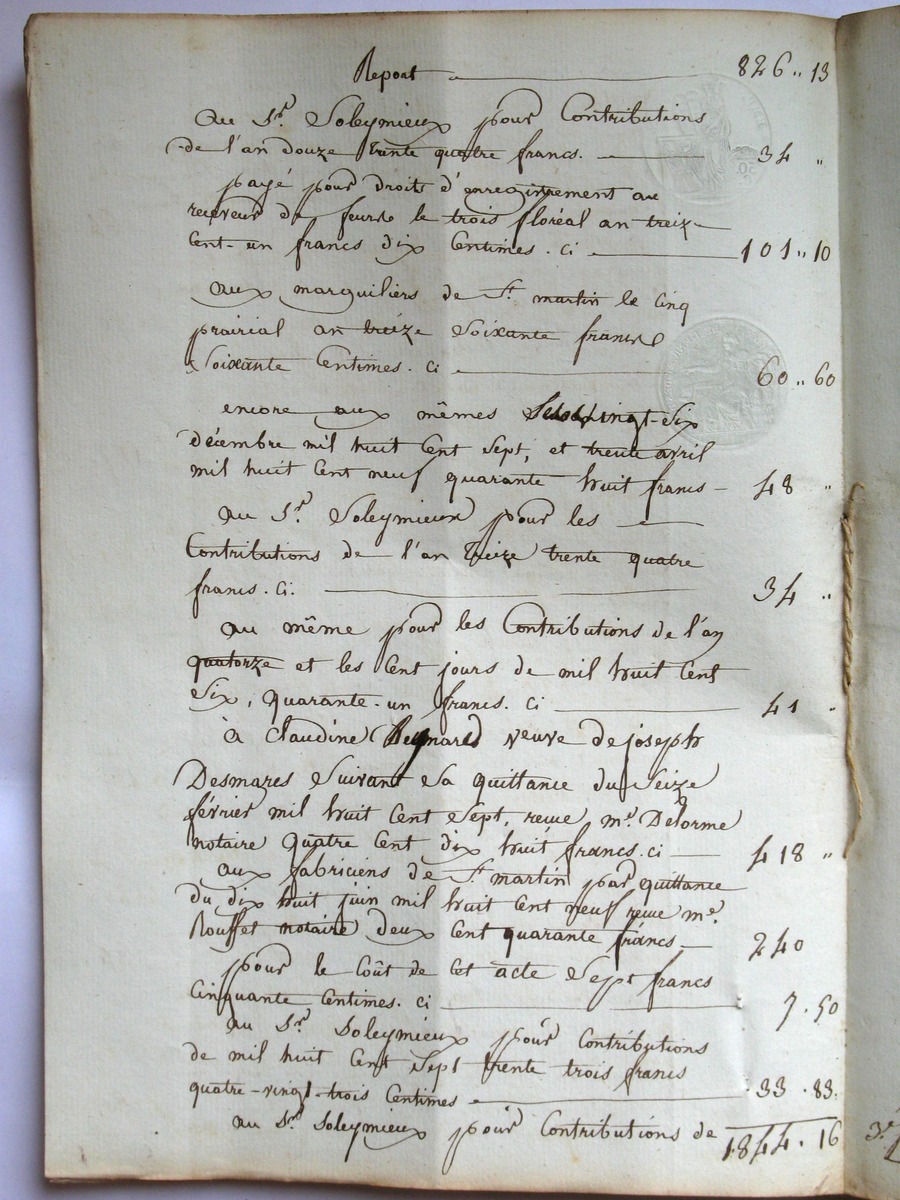 Report 826 .. 13
au Sr. Soleymieux pour Contributions
de l'an douze trente quatre francs. 34 "
payé pour droits d'enregistrement au
receveur de feurs le trois floréal an treize
Cent-un francs dix Centimes. ci 101 .. 10
aux marguiliers de St. martin le cinq
prairial an treize Soixante francs
Soixante Centimes. ci 60 .. 60
encore aux mêmes vingt-Six
décembre mil huit Cent Sept, et trente avril
mil huit Cent neuf quarante huit francs 48 "
au Sr. Soleymieux pour les
Contributions de l'an treize trente quatre
francs. ci. 34 "
au même pour les Contributions de l'an
quatorze et les Cent jours de mil huit Cent
Six, quarante-un francs. ci 41 "
à Claudine Reynard veuve de joseph
Desmares Suivant Sa quittance du Seize
février mil huit Cent Sept, reçue me. Delorme
notaire Quatre Cent dix huit francs. ci 418 "
aux fabriciens de St. martin par quittance
du dix huit juin mil huit Cent neuf reçue me.
Rouffet notaire Deux Cent quarante francs 240
pour le Coût de Cet acte Sept francs
Cinquante Centimes. ci 7 . 50
au Sr. Soleymieux pour Contributions
de mil huit Cent Sept trente trois francs
quatre-vingt-trois Centimes 33 . 83
au Sr. Soleymieux pour Contributions de 1844 . 16